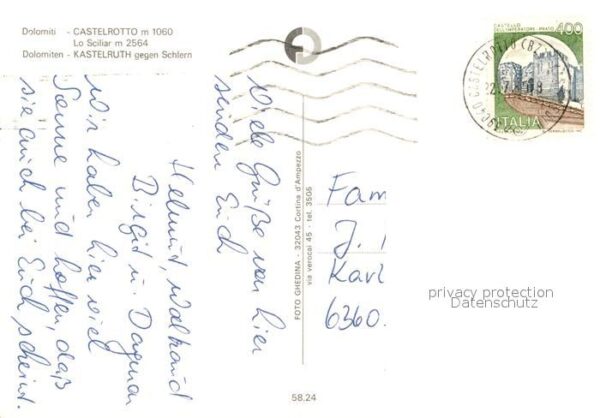 Dolomiti - CASTELROTTO m 1060
Lo Sciliar m 2564
Dolomiten - KASTELRUTH gegen Schlern
Viele Grüße von hier
senden Euch
Helmut, Waltraud
Birgit u. Dagmar
Wir haben hier viel
Sonne und hoffen, daß
sie auch bei Euch scheint.
FOTO GHEDINA - 32043 Cortina d'Ampezzo
via verocai 45 - tel. 3506
58.24
CASTELLO
DELL'IMPERATORE - PRATO
400
ITALIA
CASTELROTTO (BZ)
Fam
J.
Karl
6360
privacy protection
Datenschutz